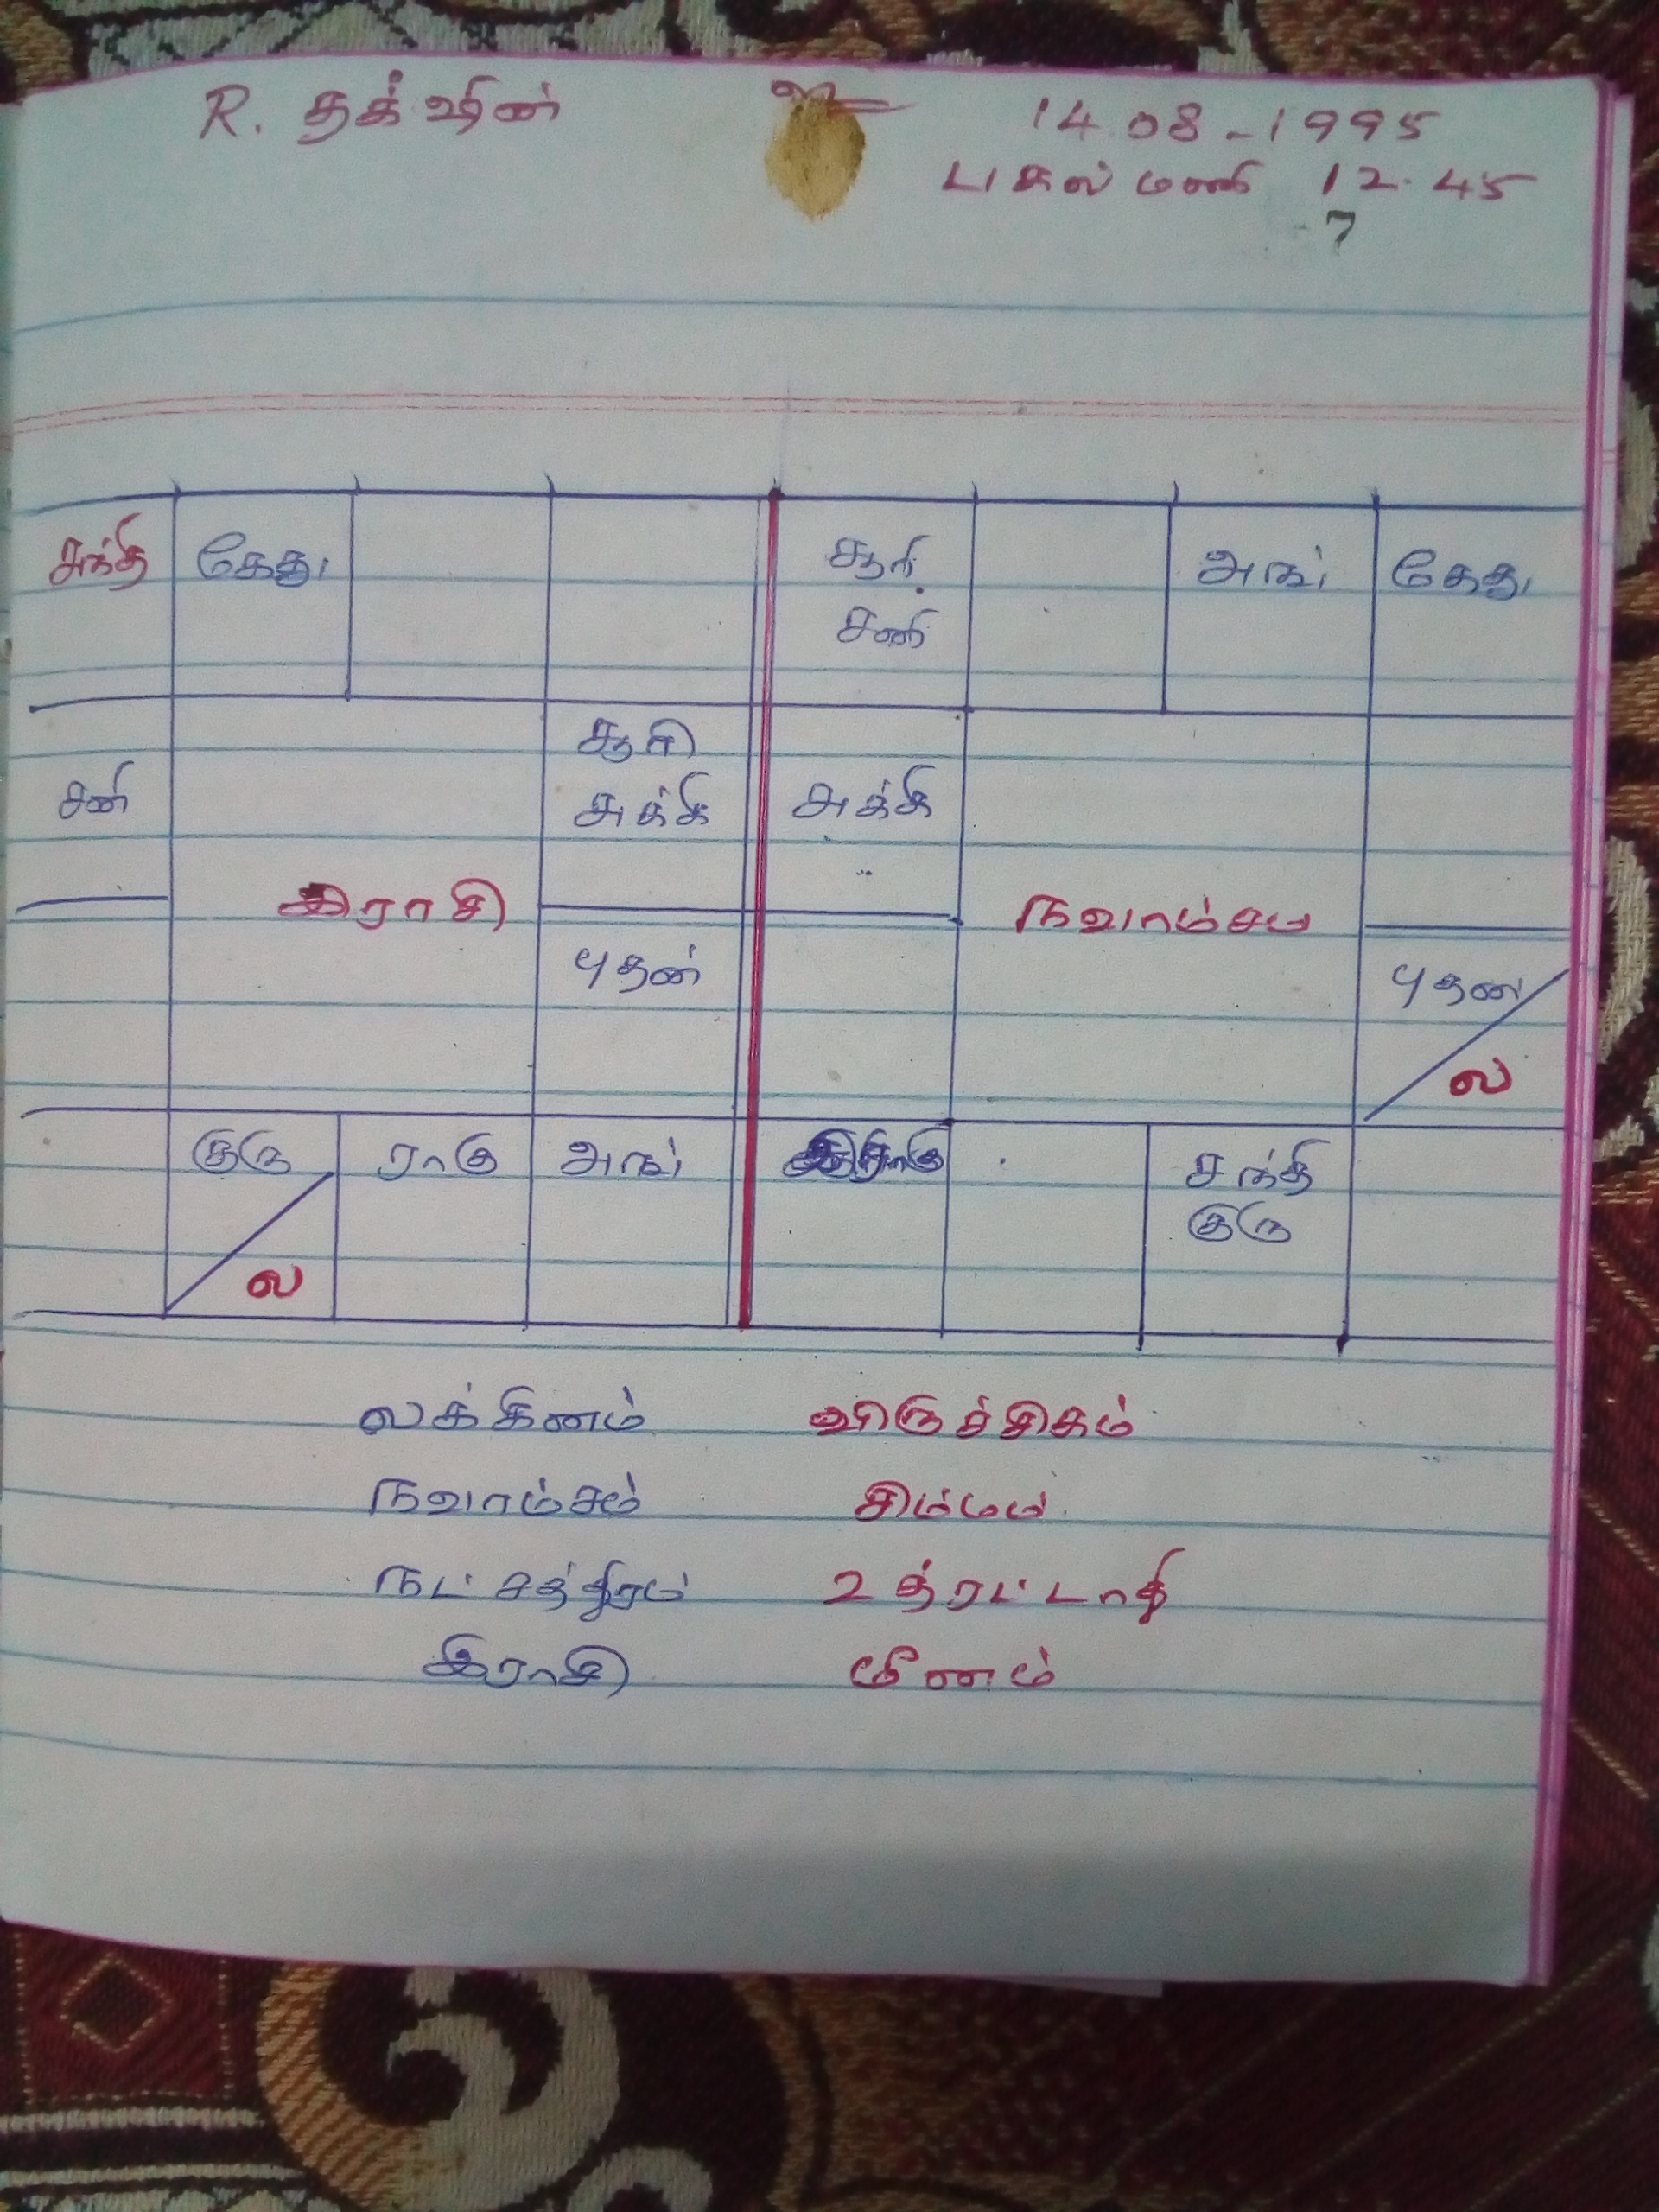 R. தக்ஷின்
உ
14.08-1995
பகல் மணி 12.45
7
சந்தி கேது சூரி அங் கேது
சனி
சூரி
சனி சுக்கி சுக்கி
இராசி நவாம்சம்
புதன் புதன்
ல
குரு ராகு அங் இராகு சந்தி
குரு
ல
லக்கினம் விருச்சிகம்
நவாம்சம் சிம்மம்
நட்சத்திரம் உத்ரட்டாதி
இராசி மீனம்